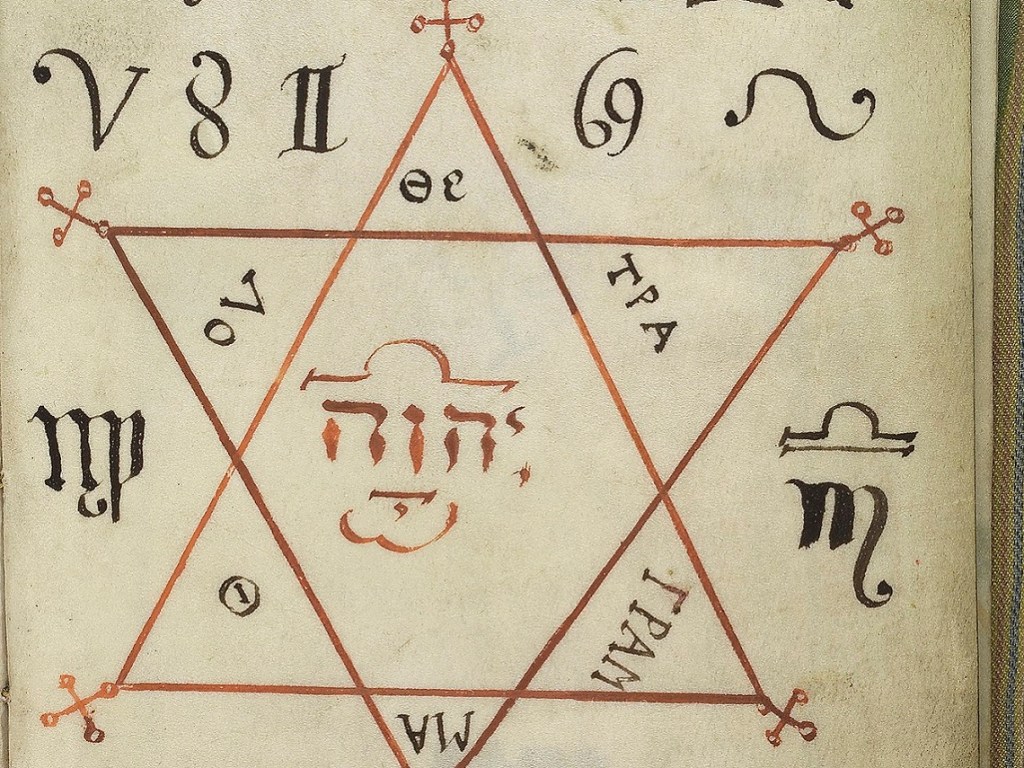 ♈ ♉ ♊ ♋ ♌
ΘΕ
ΤΡΑ
יהוה
♍ ♎
♏
ΓΡΑΜ
ΜΑ